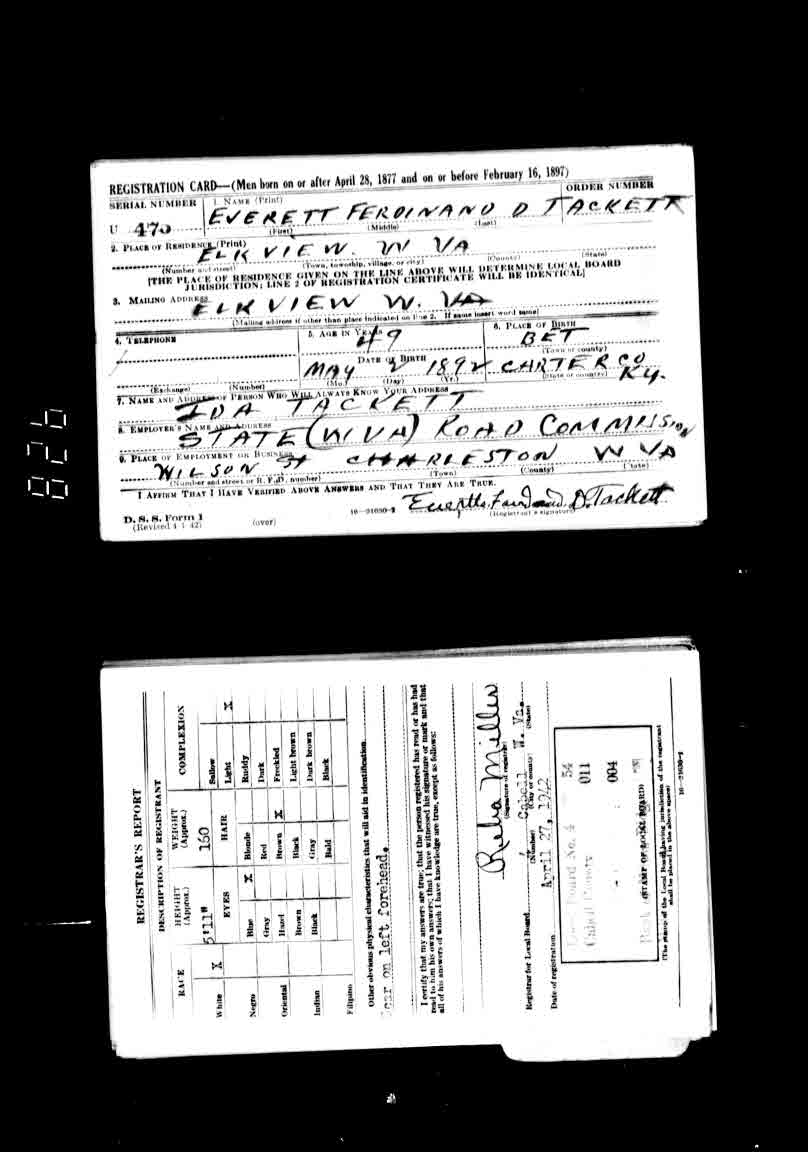 REGISTRATION CARD—(Men born on or after April 28, 1877 and on or before February 16, 1897)
SERIAL NUMBER
1. NAME (Print)
ORDER NUMBER
U 470
EVERETT FERDINAND D TACKETT
(First) (Middle) (Last)
2. PLACE OF RESIDENCE (Print)
ELKVIEW. W VA
(Number and street) (Town, township, village, or city) (County) (State)
[THE PLACE OF RESIDENCE GIVEN ON THE LINE ABOVE WILL DETERMINE LOCAL BOARD
JURISDICTION; LINE 2 OF REGISTRATION CERTIFICATE WILL BE IDENTICAL]
3. MAILING ADDRESS
ELKVIEW W. VA
[Mailing address if other than place indicated on line 2. If same insert word same]
4. TELEPHONE
5. AGE IN YEARS
49
6. PLACE OF BIRTH
BET
(Town or county)
DATE OF BIRTH
MAY 2 1892
CARTER CO
KY.
(Exchange) (Number)
(Mo.) (Day) (Yr.)
(State or country)
7. NAME AND ADDRESS OF PERSON WHO WILL ALWAYS KNOW YOUR ADDRESS
IDA TACKETT
8. EMPLOYER'S NAME AND ADDRESS
STATE (W VA) ROAD COMMISSION
9. PLACE OF EMPLOYMENT OR BUSINESS
WILSON St CHARLESTON W VA
(Number and street or R. F. D. number) (Town) (County) (State)
I AFFIRM THAT I HAVE VERIFIED ABOVE ANSWERS AND THAT THEY ARE TRUE.
D. S. S. Form 1
(Revised 4-1-42)
(over)
16—21630-2
D. Tackett
(Registrant's signature)
826
REGISTRAR'S REPORT
DESCRIPTION OF REGISTRANT
RACE
HEIGHT
(Approx.)
WEIGHT
(Approx.)
COMPLEXION
5'11"
160
White X
EYES
HAIR
Sallow
Light X
Negro
Blue X
Blonde
Ruddy
Gray
Red
Dark
Oriental
Hazel
Brown X
Freckled
Brown
Black
Light brown
Indian
Black
Gray
Dark brown
Bald
Black
Filipino
Other obvious physical characteristics that will aid in identification
car on left forehead.
I certify that my answers are true; that the person registered has read or has had
read to him his own answers; that I have witnessed his signature or mark and that
all of his answers of which I have knowledge are true, except as follows:
Reba Miller
(Signature of registrar)
Registrar for Local Board
Cabell W. Va.
(Number) (City or county) (State)
Date of registration April 27, 1942
Board No. 4 54
Cabell County 011
004
(STAMP OF LOCAL BOARD)
(The stamp of the Local Board having jurisdiction of the registrant
shall be placed in the above space)
16—21630-2